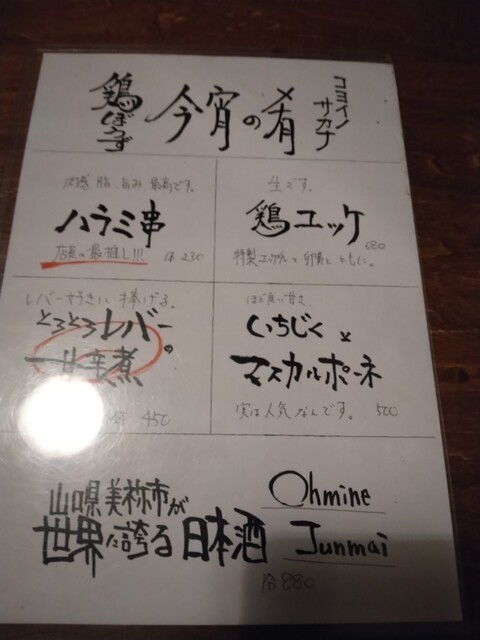 鶏ぼうず
今宵の肴
コヨイノ
サカナ
肉感 脂 旨み 最高です。
ハラミ串
店長の最推し!!!
230
生です。
鶏ユッケ
680
特製ユッケダレと卵黄とともに。
レバー好きに捧げる。
とろとろレバーの
甘辛煮
450
ほど良い甘さ
いちじくと
マスカルポーネ
実は人気なんです。 500
山口県美祢市が
世界に誇る日本酒
Ohmine
Junmai
880